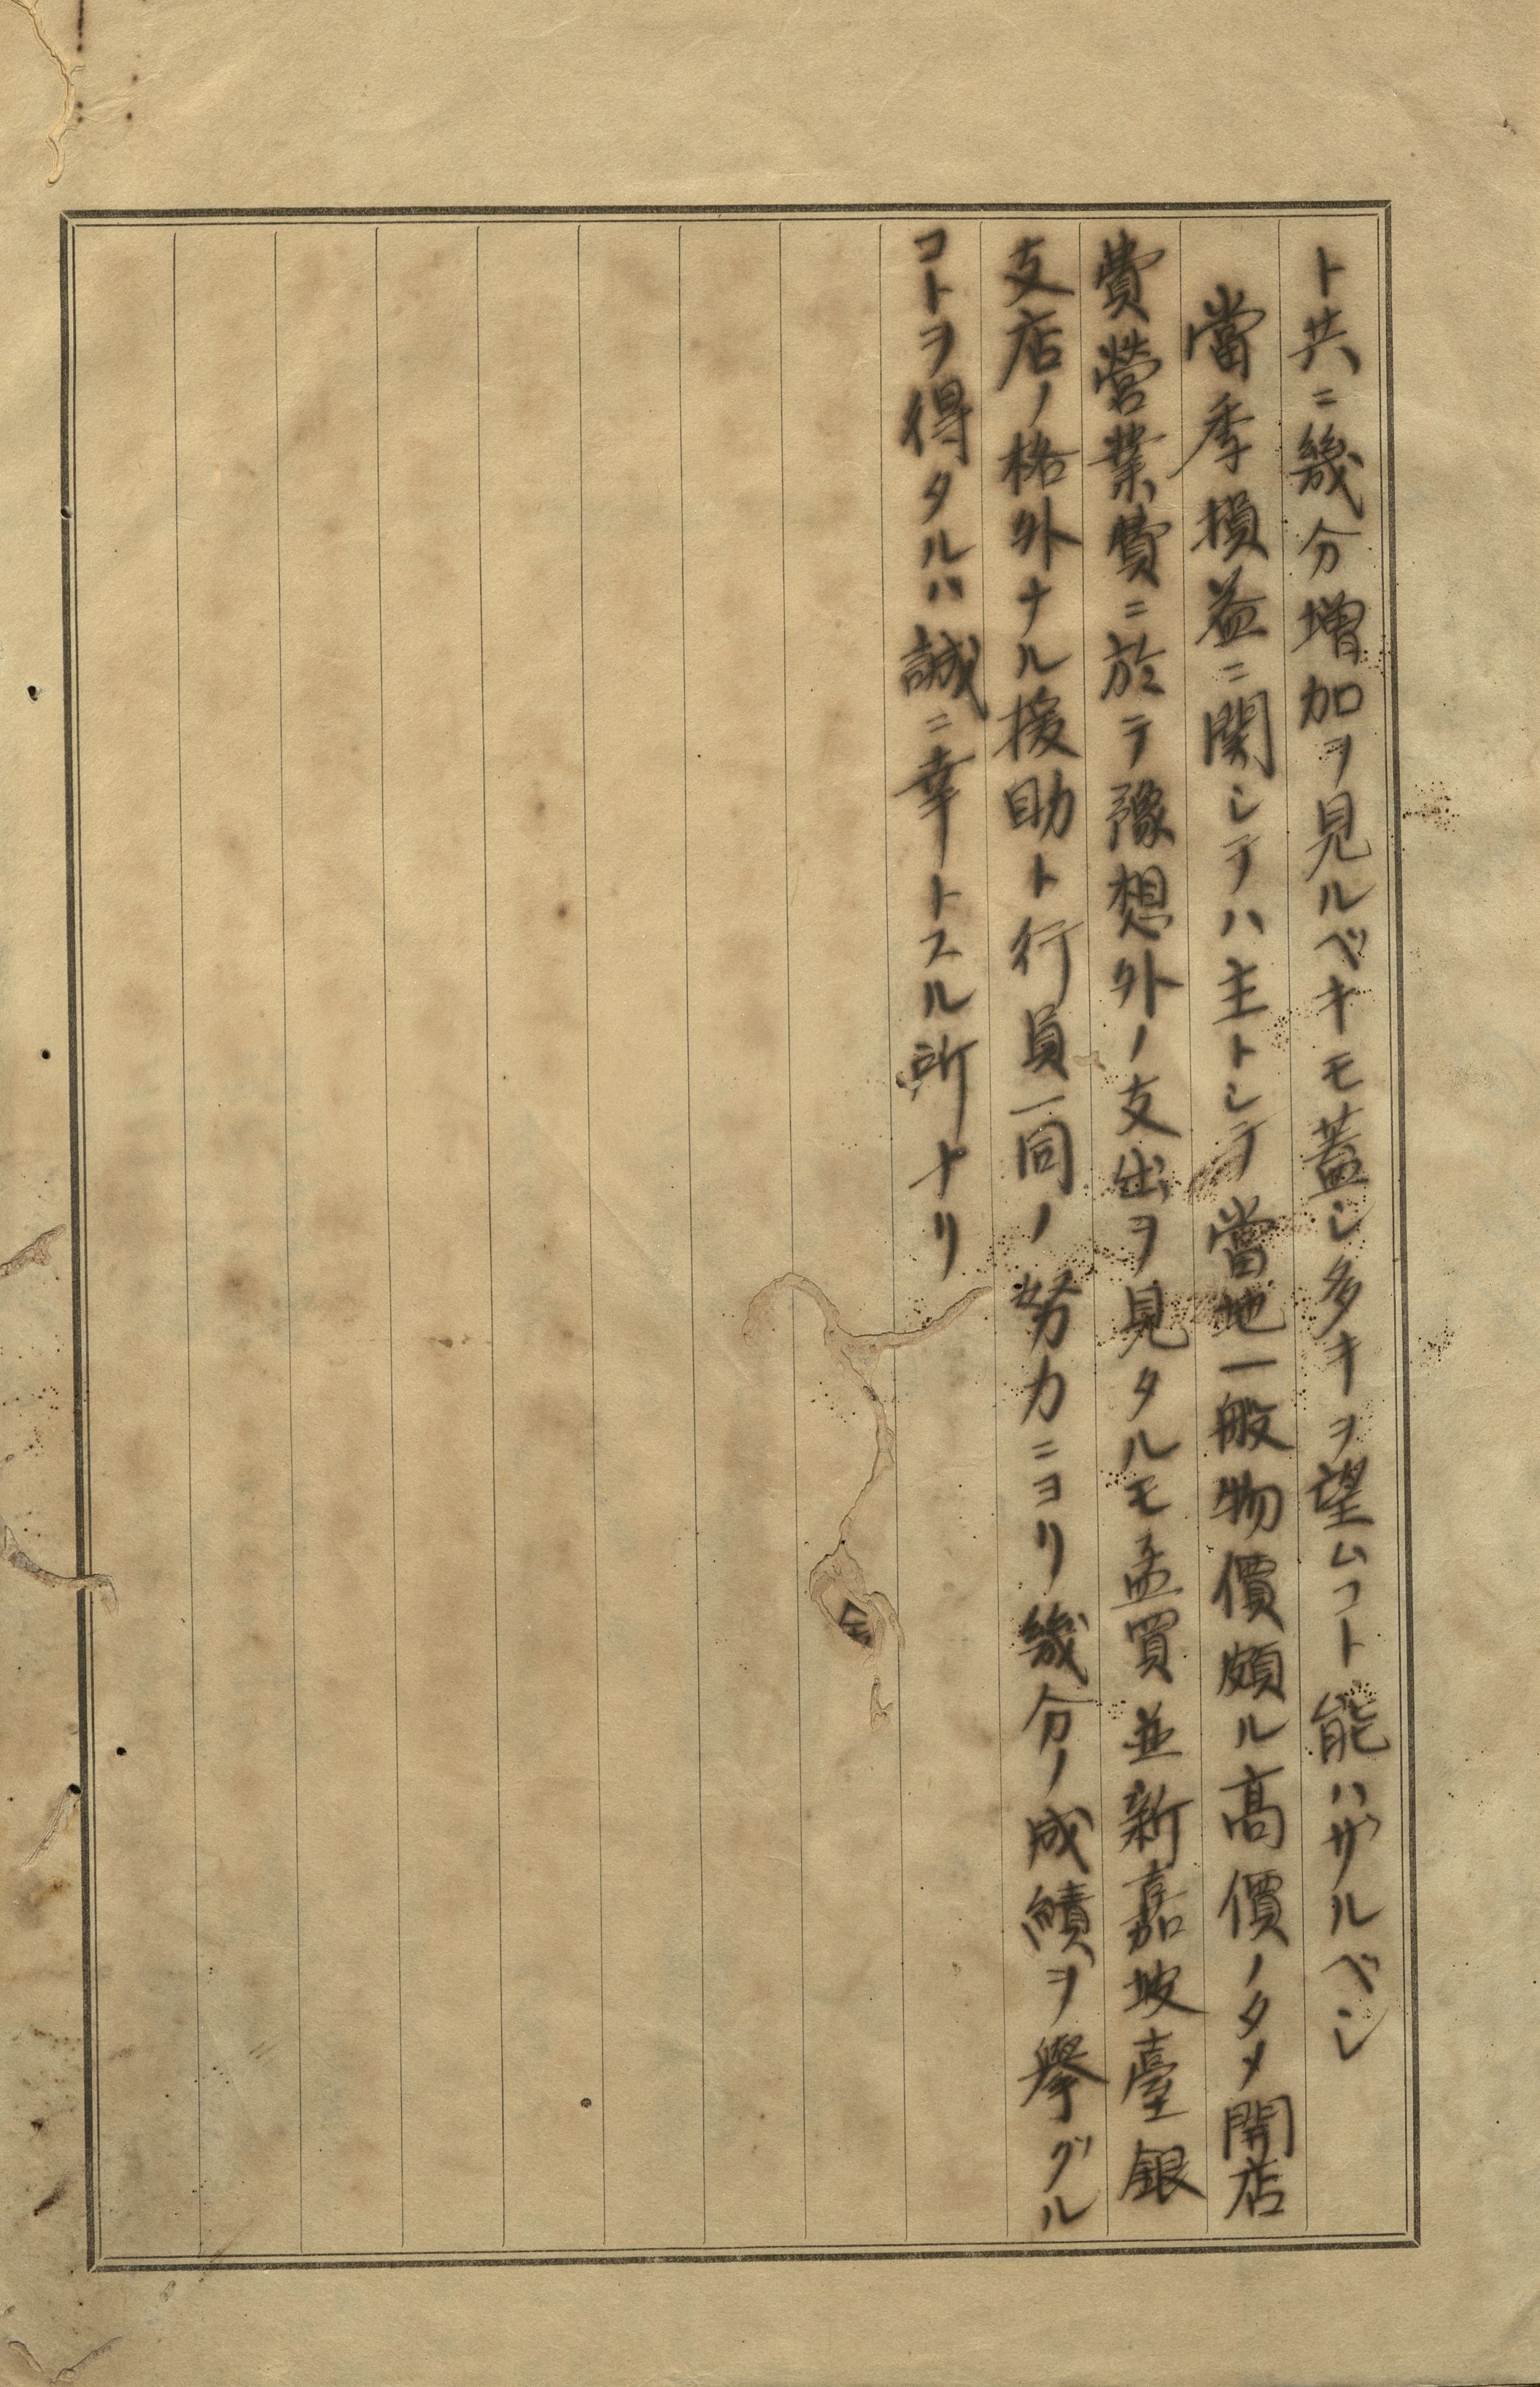 ト共ニ幾分増加ヲ見ルベキモ蓋シ多キヲ望ムコト能ハザルベシ
當季損益ニ関シテハ主トシテ當地一般物價頗ル高價ノタメ開店
費營業費ニ於テ豫想外ノ支出ヲ見タルモ孟買並新嘉坡臺銀
支店ノ格外ナル援助ト行員一同ノ努力ニヨリ幾分ノ成績ヲ擧グル
コトヲ得タルハ誠ニ幸トスル所ナリ